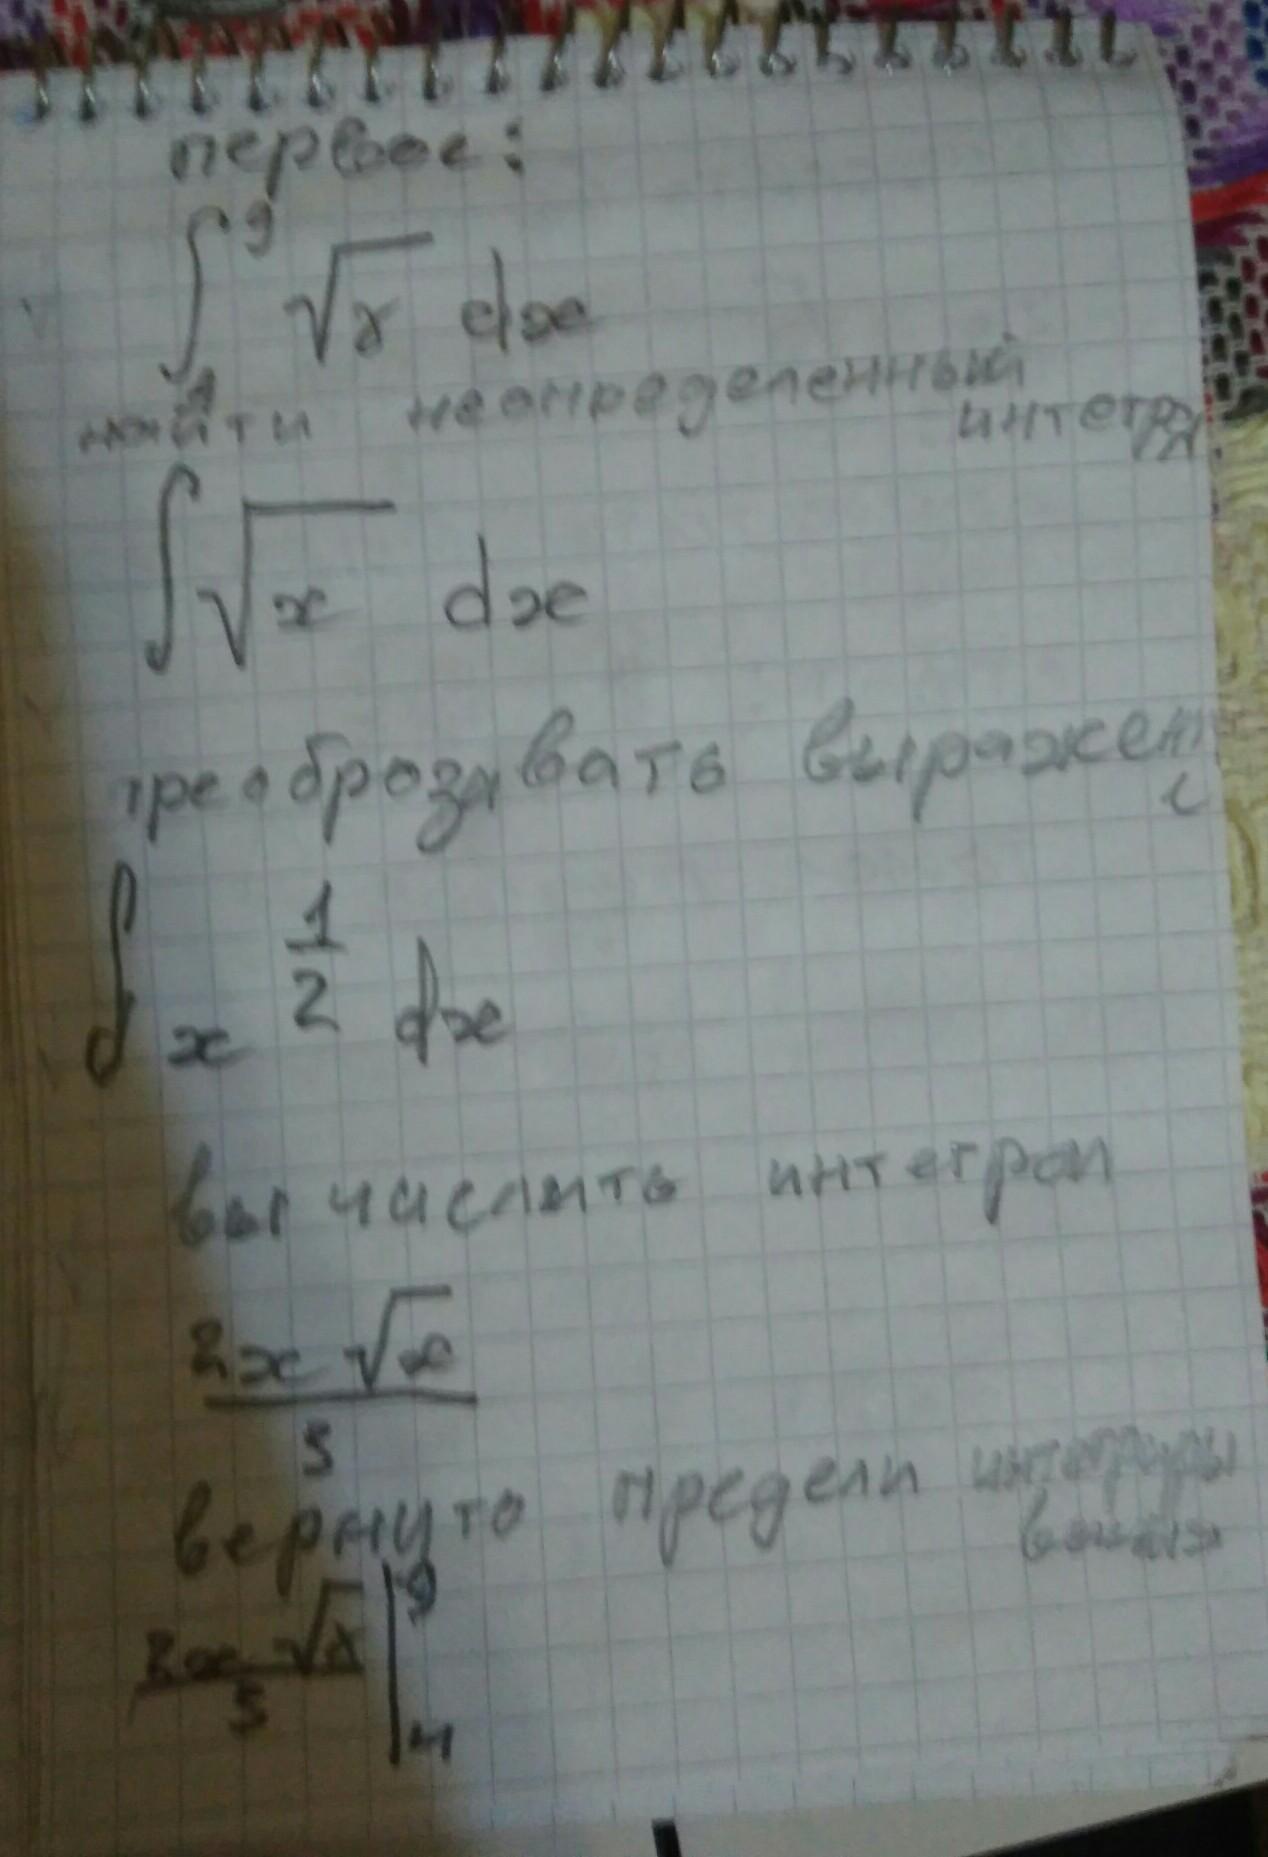 первое:
∫₄⁹ √x dx
найти неопределенный
интеграл
∫√x dx
преобразавать выражени
∫ x^(1/2) dx
вычислить интеграл
2x √x / 3
вернуто предели интегриро
вания
2x √x / 3 |₄⁹